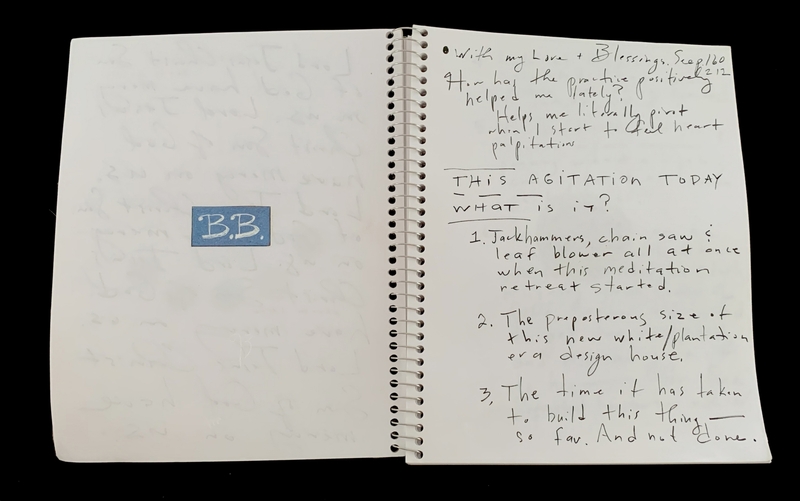 B.B.
• With my Love + Blessings. See p 160
How has the practice positively 212
helped me lately?
Helps me literally pivot
when I start to feel heart
palpitations
THIS AGITATION TODAY
WHAT is iT?
1. Jackhammers, chain saw &
leaf blower all at once
when this meditation
retreat started.
2. The preposterous size of
this new white/plantation
era design house.
3. The time it has taken
to build this thing —
so far. And not done.